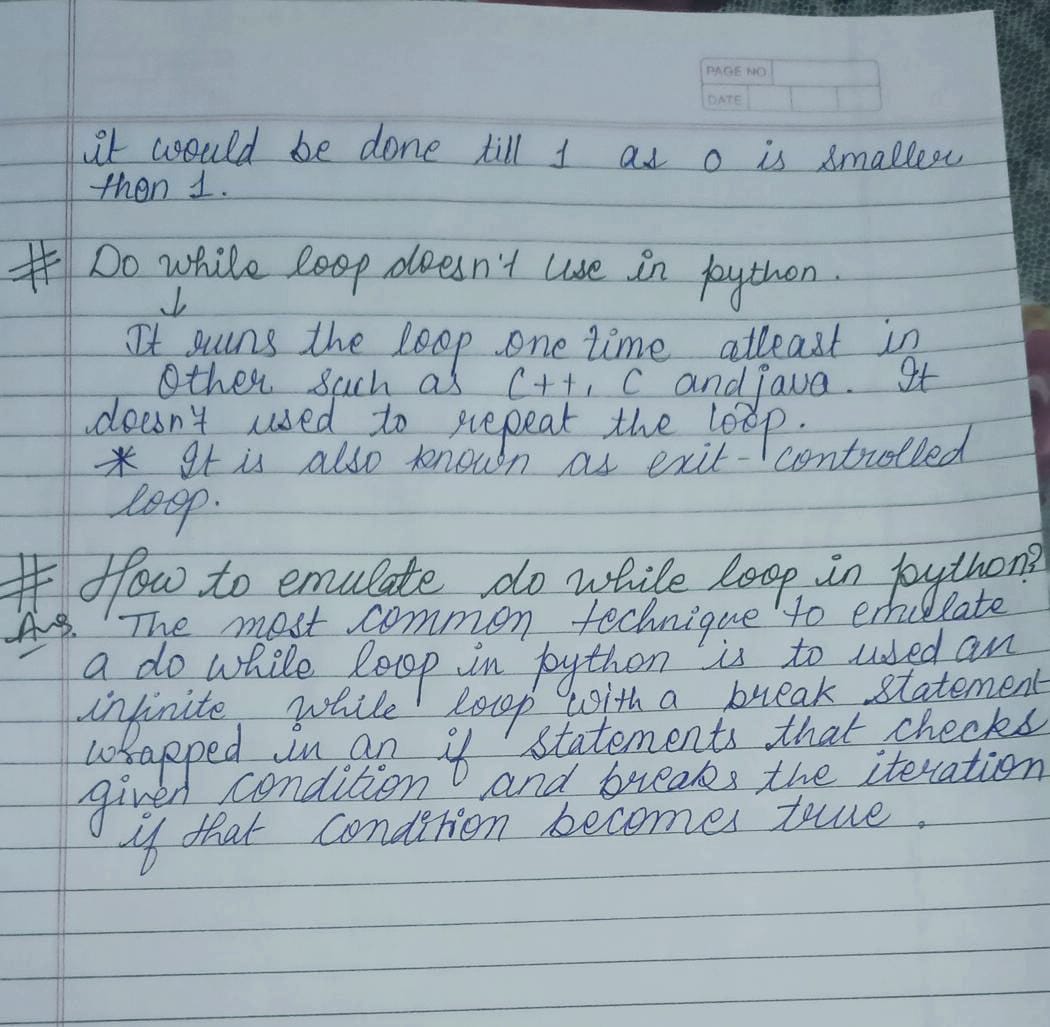 PAGE NO
DATE
it would be done till 1 as 0 is smaller
than 1.
# Do while loop doesn't use in python.
↓
It runs the loop one time atleast in
Other such as C++, C and java. It
doesn't used to repeat the loop.
* It is also known as exit-controlled
loop.
# How to emulate do while loop in python?
Ans. The most common technique to emulate
a do while loop in python is to used an
infinite while loop with a break statement
wrapped in an if statements that checks
given condition and breaks the iteration
if that condition becomes true.